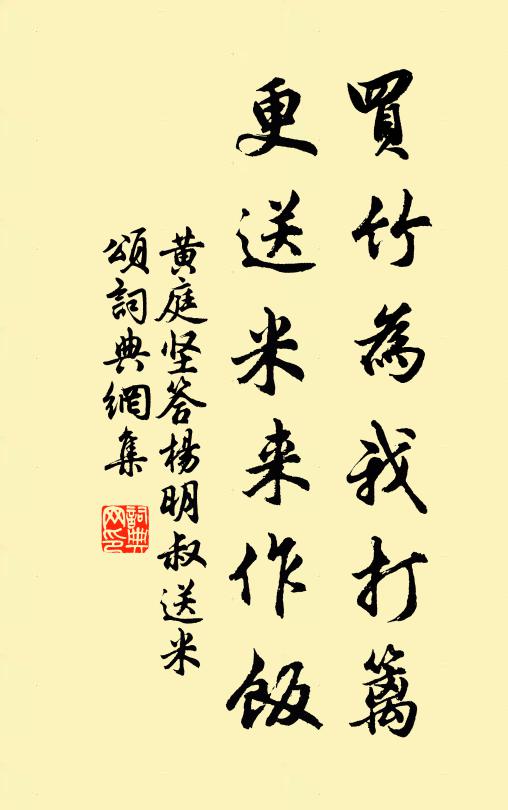 買竹為我打篱
更送米来作飯
黄庭坚答楊明叔送米
頌詞典網集
詞典
网印